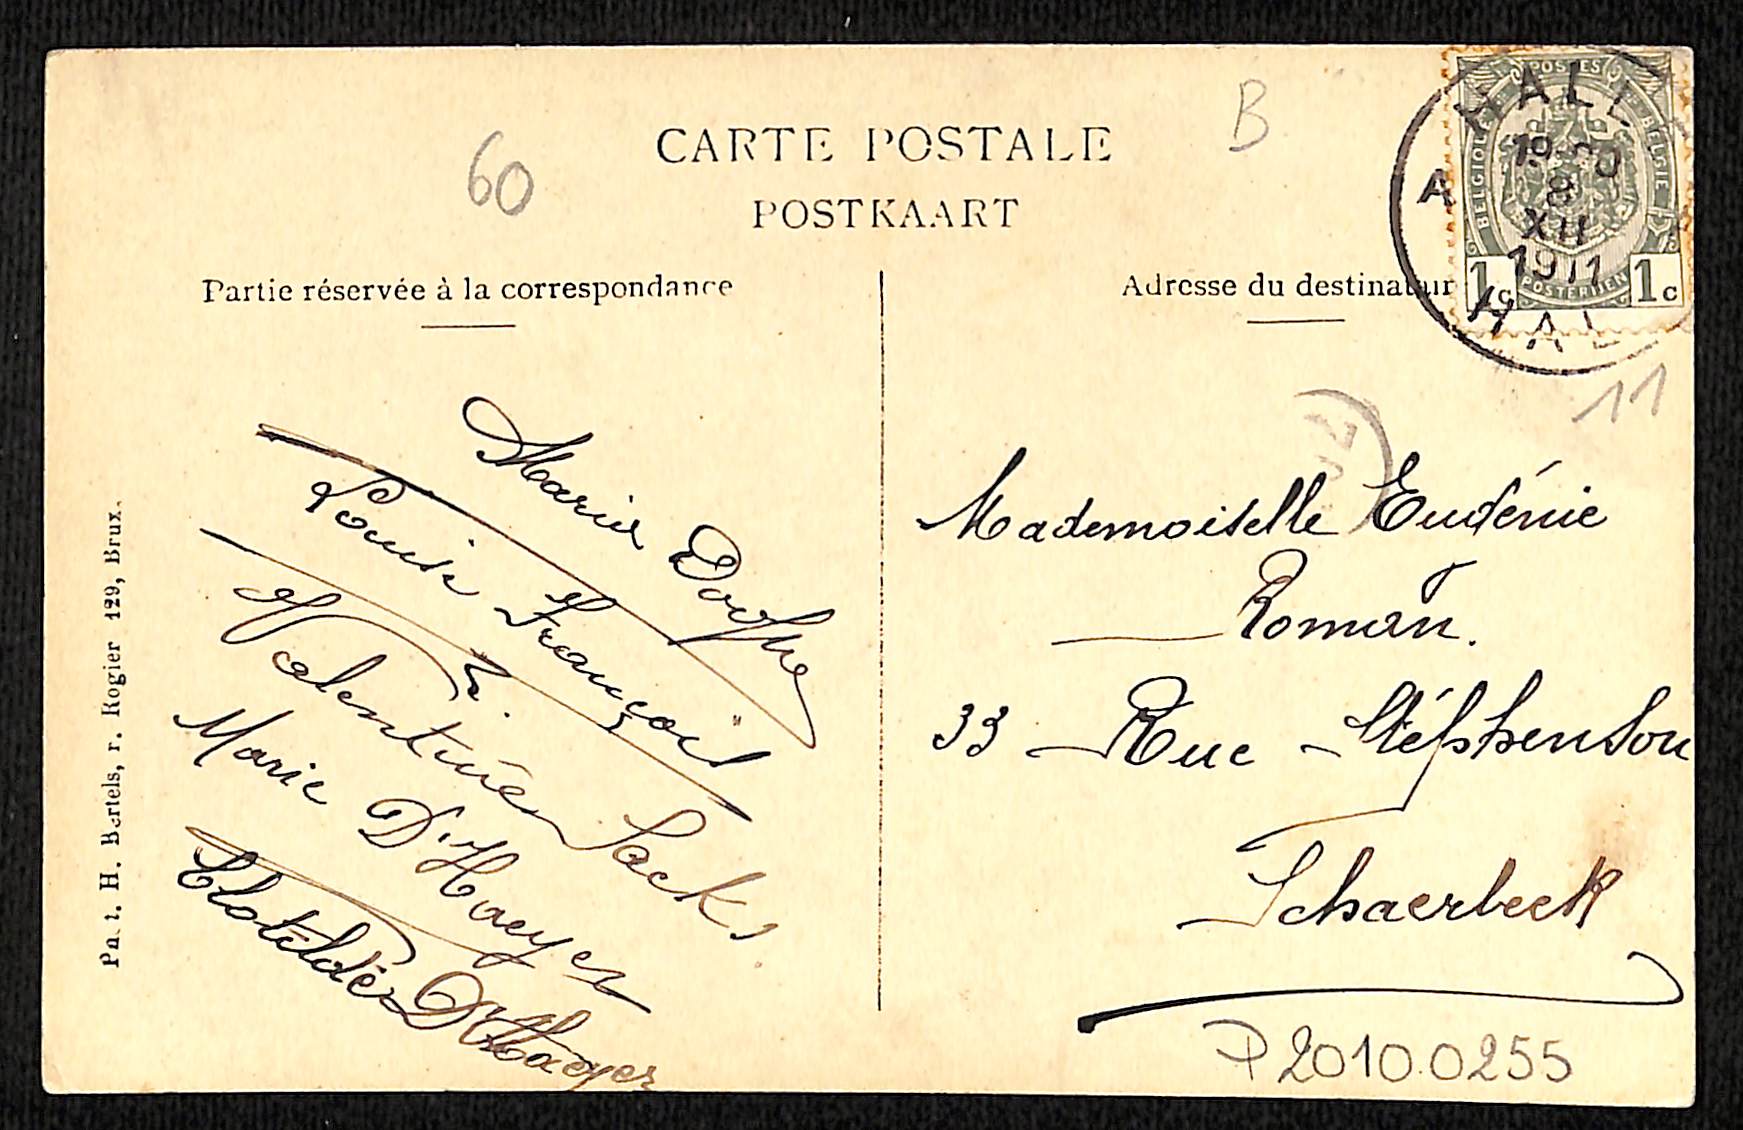 CARTE POSTALE
POSTKAART
60
B
Partie réservée à la correspondance
Adresse du destinat ur
POSTES
BELGIQUE
BELGIE
POSTERIJEN
1c 1c
HALL
A
8
XII
1911
HAL
11
Maria
Louise François
Valentine Sacks
Marie D'Haeyer
Clotilde D'Haeyer
Mademoiselle Eudénie
Roman.
33 Rue Stéphenson
Schaerbeek
P2010.0255
Pat. H. Bertels, r. Rogier 129, Brux.